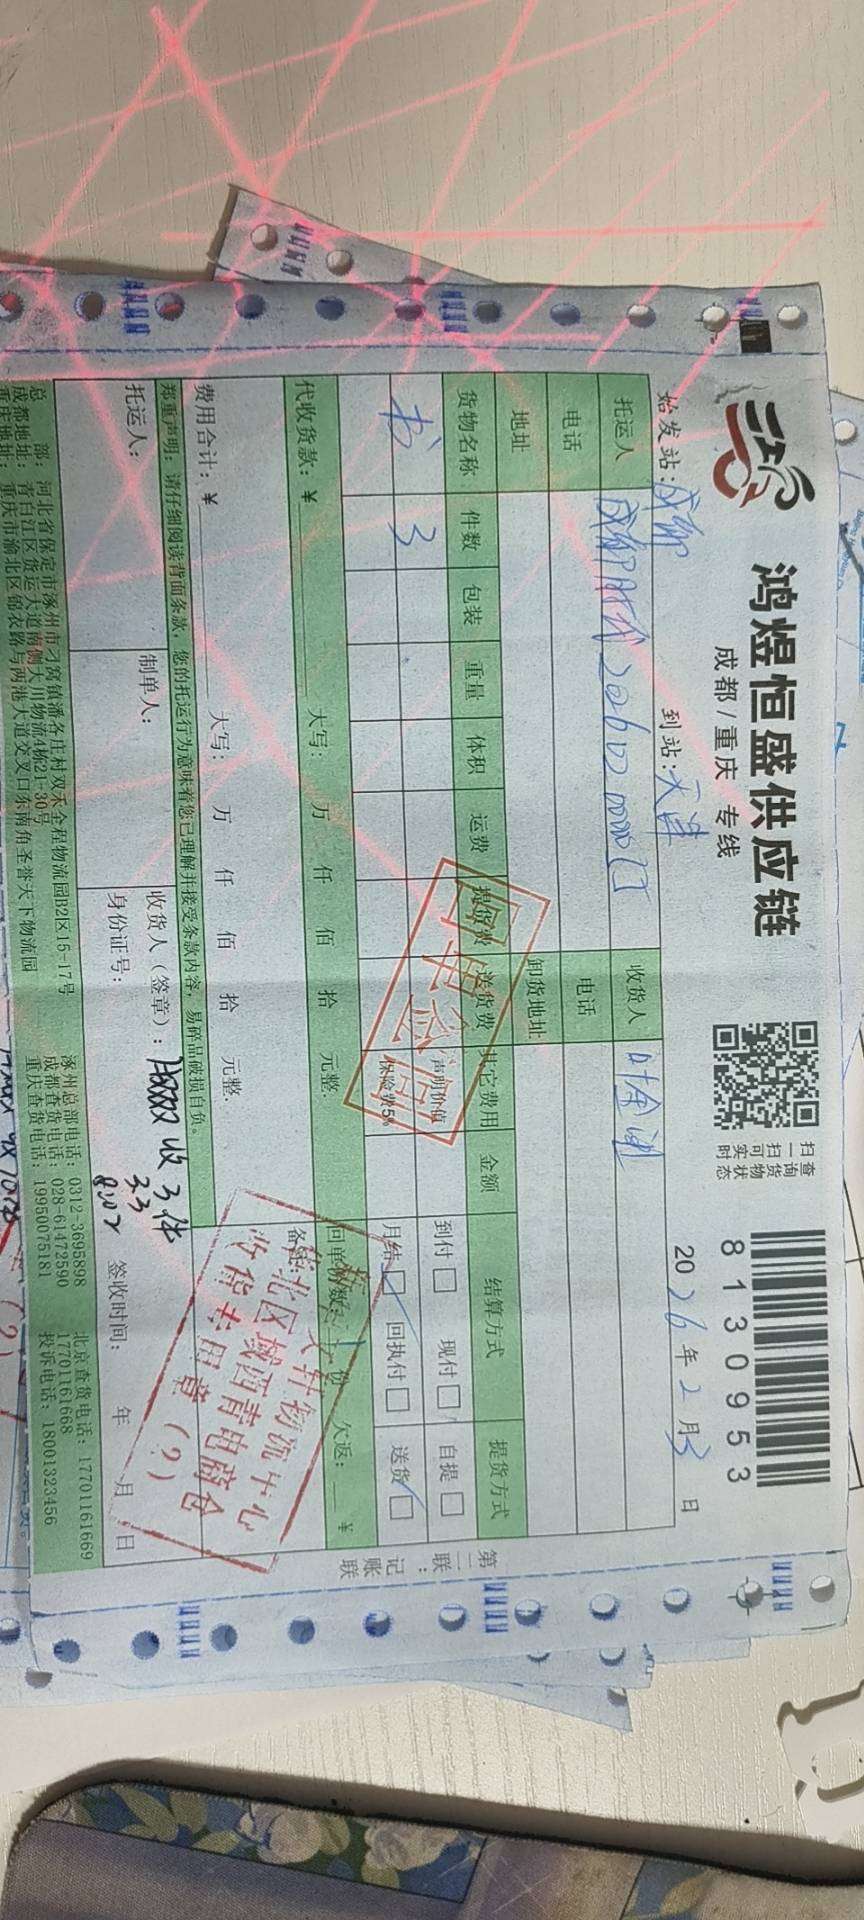 鸿煜恒盛供应链
成都/重庆 专线
扫一扫可实时
查询货物状态
8130953
始发站:成都
到站:天津
2026年2月3日
托运人
成都时代
收货人
叶金
电话
电话
地址
卸货地址
货物名称 件数 包装 重量 体积 运费 提货费 送货费 其它费用 金额 结算方式 提货方式
书 3
声明价值
保险费5‰
到付□ 现付□
月结□ 回执付□
自提□
送货□
代收货款:¥ 大写: 万 仟 佰 拾 元整.
回单份数: 1 份 欠返: ¥
费用合计:¥ 大写: 万 仟 佰 拾 元整.
备注:
郑重声明:请仔细阅读背面条款,您的托运行为意味着您已理解并接受条款内容,易碎品破损自负。
托运人:
制单人:
收货人(签章):
收3件
3.3
身份证号:
签收时间: 年 月 日
文轩物流中心
华北区域西青电商仓
收货专用章(2)
第二联:记账联
总部:河北省保定市涿州市刁窝镇潘各庄村双禾全程物流园B2区15-17号 涿州总部电话:0312-3695898 北京查货电话:17701161669
成都地址:青白江区货运大道南侧大川物流4栋21-30号 成都查货电话:028-61472590 17701161668
重庆地址:重庆市渝北区锦衣路与两港大道交叉口东南角圣誉天下物流园 重庆查货电话:19950075181 投诉电话:18001323456